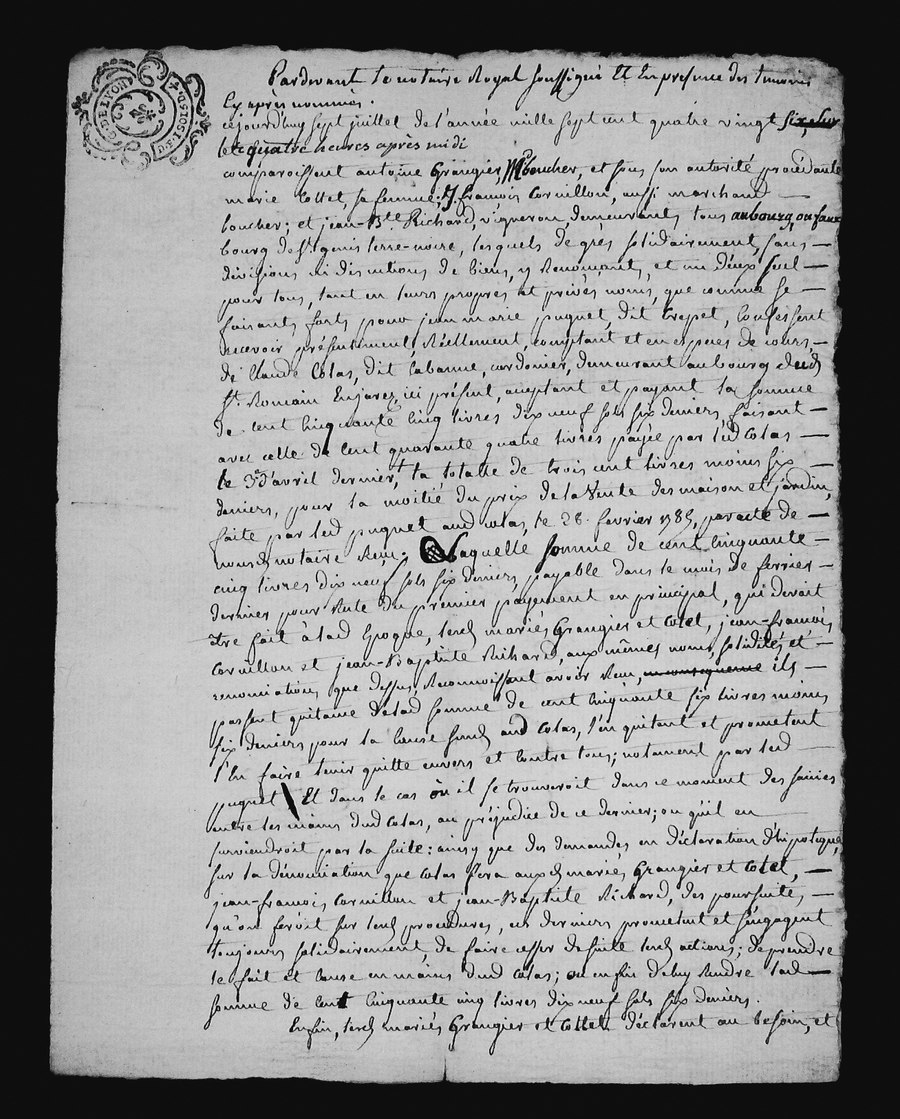 Pardevant le notaire Royal soussigné Et En presence des temoins
Cy après nommés.
cejourd'huy sept juillet de l'année mille sept cent quatre vingt six, sur
les quatre heures après midi
comparoissent antoine Grangier, Md boucher, et sous son autorité procédante
marie Collet, sa femme; J. françois Corvillon, aussi marchand
boucher; et jean-Bte Richard, vigneron, demeurants tous au bourg, ou faux
bourg de st genis terre-noire, lesquels de grès solidairement, sans
divisions ni discutions de biens, y Renonçants, et un d'eux seul
pour tous, tant en leurs propres et privés noms, que comme se
faisants forts pour jean marie puguet, dit Crepet, Confessent
Recevoir présentement, Réellement, comptant et en espèces de cours
de Claude Colas, dit Cabanne, cordonier, demeurant au bourg dud
St. Romain Enjarez, ici présent, acceptant et payant la somme
de cent cinquante cinq livres dix neuf sols six deniers, faisant
avec celle de Cent quarante quatre livres payée par led Colas
le 3e d'avril dernier, la totalle de trois cent livres moins six
deniers, pour la moitié du prix de la Vente des maison et jardin,
faite par led puguet aud Colas, le 28. fevrier 1785, par acte de
nousd notaire Reçu; Laquelle somme de cent cinquante
cinq livres dix neuf sols six deniers, payable dans le mois de fevrier
dernier pour Reste du premier payement en principal, qui devoit
être fait à lad Epoque, lesd mariés Grangier et Colet, jean-françois
Corvillon et jean-Baptiste Richard, aux mêmes noms, solidités et
renonciations que dessus, Reconnoissent avoir Reçu, en conséquence ils
passent quitance de lad somme de cent cinquante six livres moins
six deniers pour la Cause susd aud Colas, l'en quitant et prometent
l'En faire tenir quitte envers et Contre tous; notament par led
puguet; Et dans le cas où il se trouveroit dans ce moment des saisies
entre les mains dud Colas, au préjudice de ce dernier; ou qu'il en
surviendroit par la suite: ainsy que des demandes en déclaration d'hipoteque,
sur la dénonciation que Colas fera auxd mariés Grangier et Colet,
jean-françois Corvillon et jean-Baptiste Richard, des poursuites,
qu'on feroit sur lesd procedures, ces derniers prometent et s'engagent
toujours solidairement, de faire cesser de suite lesd actions; de prendre
le fait et Cause en mains dud Colas; ou enfin de luy Rendre lad
somme de Cent Cinquante cinq livres dix neuf sols six deniers.
Enfin, lesd mariés Grangier et Collet déclarent au besoin, et